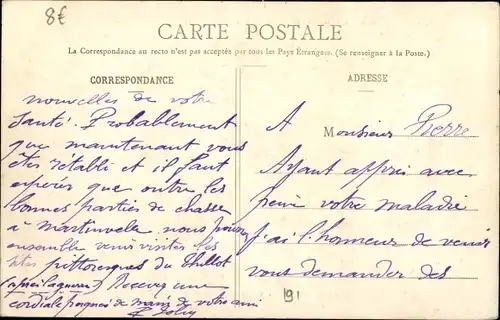 8€
CARTE POSTALE
La Correspondance au recto n'est pas acceptée par tous les Pays Étrangers. (Se renseigner à la Poste.)
CORRESPONDANCE
ADRESSE
A
Monsieur Pierre
Ayant appris avec
peine votre maladie
j'ai l'honneur de venir
vous demander des
nouvelles de votre
Santé. Probablement
que maintenant vous
êtes rétabli et il faut
espérer que outre les
bonnes parties de chasse
à Martinvelle nous
ensemble venir visiter les
sites pittoresques du Thillot
(après la guerre) Recevez une
cordiale poignée de mains de votre ami
191